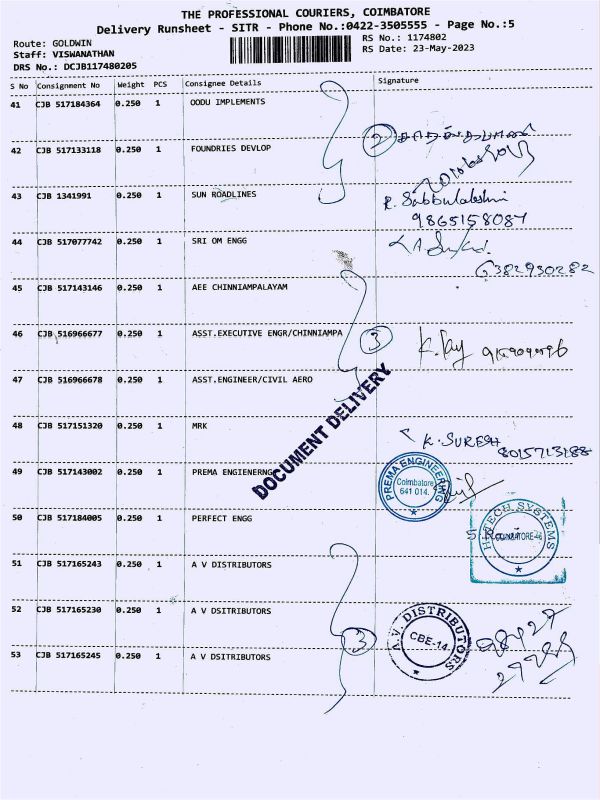 THE PROFESSIONAL COURIERS, COIMBATORE
Delivery Runsheet - SITR - Phone No.:0422-3505555 - Page No.:5
Route: GOLDWIN
RS No.: 1174802
Staff: VISWANATHAN
RS Date: 23-May-2023
DRS No.: DCJB117480205
S No Consignment No Weight PCS Consignee Details Signature
41 CJB 517184364 0.250 1 OODU IMPLEMENTS
2
42 CJB 517133118 0.250 1 FOUNDRIES DEVLOP
43 CJB 1341991 0.250 1 SUN ROADLINES R. Subbulakshmi
9865158087
44 CJB 517077742 0.250 1 SRI OM ENGG
6382930282
45 CJB 517143146 0.250 1 AEE CHINNIAMPALAYAM
46 CJB 516966677 0.250 1 ASST.EXECUTIVE ENGR/CHINNIAMPA 3
47 CJB 516966678 0.250 1 ASST.ENGINEER/CIVIL AERO
DOCUMENT DELIVERY
48 CJB 517151320 0.250 1 MRK K. SURESH
8015713188
49 CJB 517143002 0.250 1 PREMA ENGIENERNG
PREMA ENGINEERING
Coimbatore
641 014.
50 CJB 517184005 0.250 1 PERFECT ENGG
HITECH SYSTEMS
51 CJB 517165243 0.250 1 A V DSITRIBUTORS
52 CJB 517165230 0.250 1 A V DSITRIBUTORS
A.V. DISTRIBUTORS
CBE-14
3
53 CJB 517165245 0.250 1 A V DSITRIBUTORS